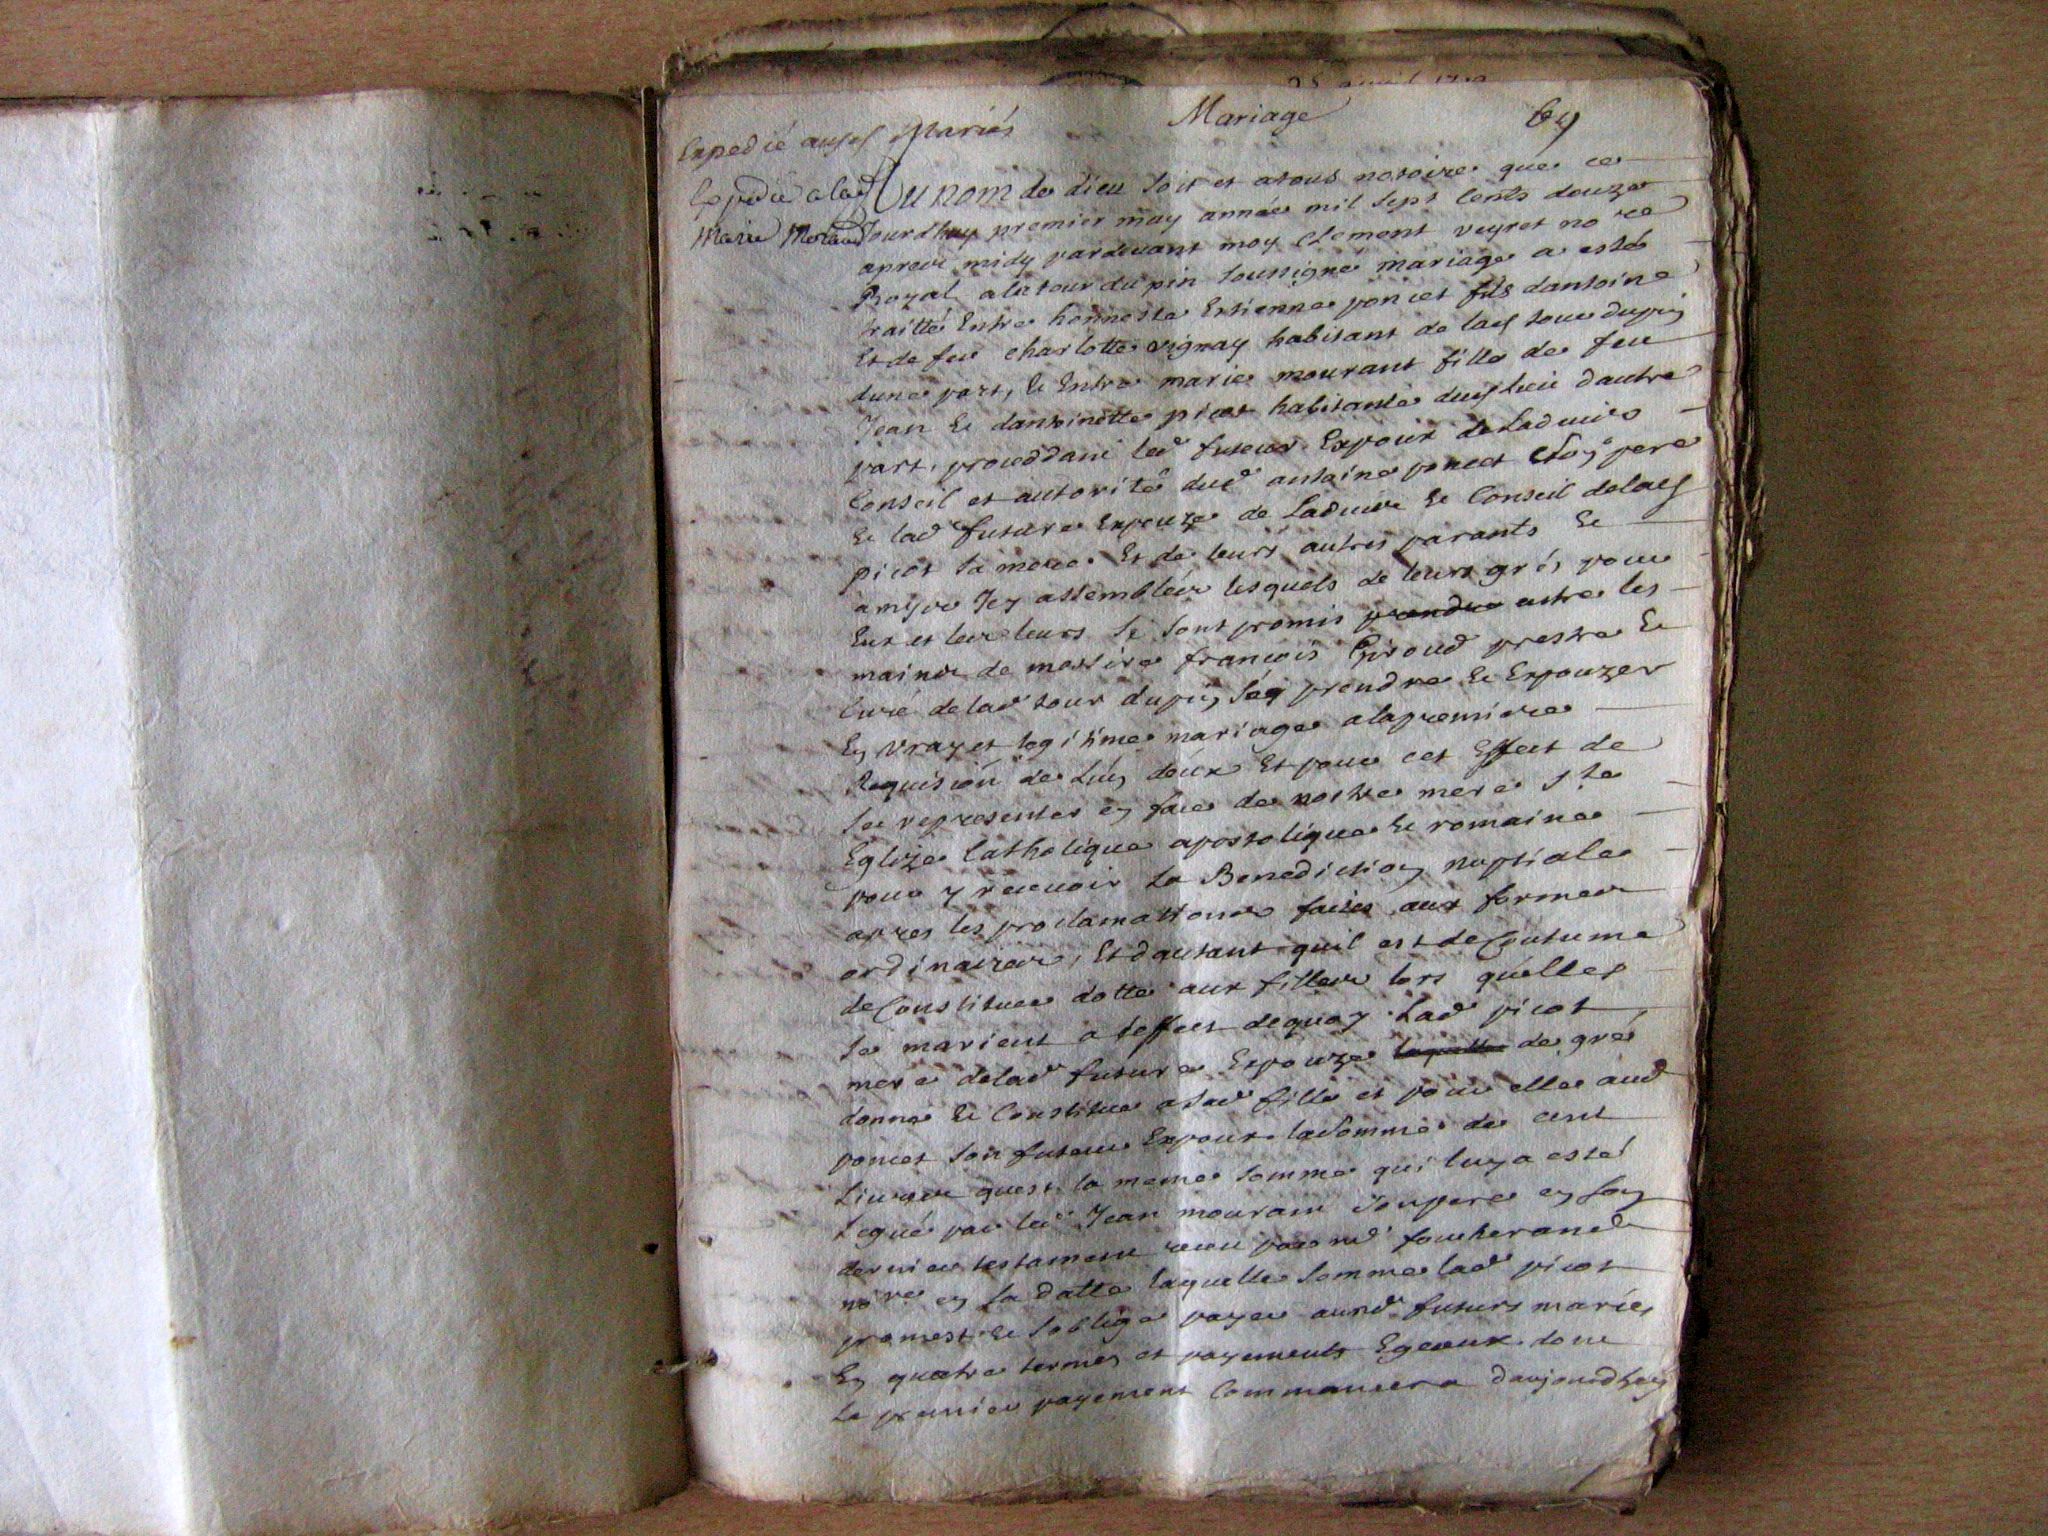 Mariage
Expedié ausd Mariés
Expedié a lad
Marie Morand
Au nom de dieu soit et atous notoire que ce
jourdhuy premier may année mil sept cents douze
apres midy pardevant moy Clement veyret no re
Royal a la tour du pin soussigné mariage a esté
traitté Entre honneste Estienne poncet fils dantoine
Et de feu charlotte vignay habitant de lad tour dupin
dune part, Et Entre marie mourant fille de feu
Jean Et dantoinette picot habitante dud lieu dautre
part, proceddant led futeur Expoux de Ladvis
Conseil et autorité dud antoine poncet son pere
Et lad future Expouze de Ladvis Et Conseil delad
picot sa mere Et de leurs autres parants Et
amys Icy assemblés lesquels de leurs gré, pour
Eux et les leurs se sont promis prendre entre les
mains de messire françois Giroud prestre Et
Curé de lad tour dupin, prendre Et Expouzer
En vray et legitime mariage a la premiere
Requision de Lun deux Et pour cet Effect de
se representer en face de nostre mere ste
Eglize Catholique apostolique Et romaine
pour y recevoir la Benediction nuptiale
apres les proclamations faites aux formes
ordinaires, Et dautant quil est de Coutume
de Constituer dotte aux filles lors quelles
se marient a leffect dequoy Lad picot
mere delad future Expouze laquelle de gré
donne Et Constitue a sad fille et pour elle aud
poncet son futeur Expoux la somme de cent
Livres quest la meme somme qui luy a esté
Legué par led Jean mourant son pere en son
dernier testament receu par me
no re en sa datte laquelle somme lad picot
promest Et soblige payer ausd futurs maries
En quatre termes et payements Egeaux dont
Le premier payement Commancera daujourdhuy